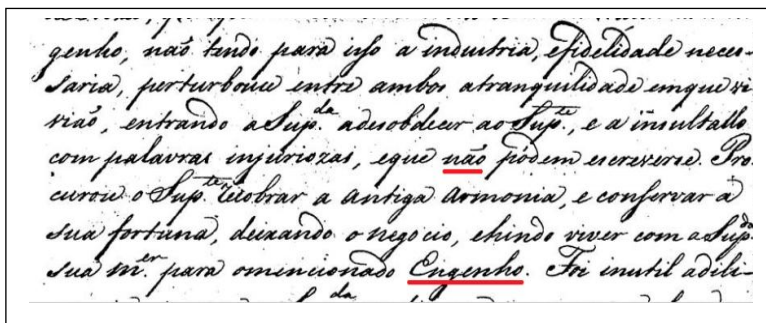 genho, naõ tendo para isso a industria, efidelidade neces-
saria, perturbouce entre ambos atranquilidade emque vi
viaõ, entrando aSup.da adesobdecer ao Sup.te, e a insultallo
com palavras injuriozas, eque não pódem escreverse. Pro
curou o Sup.te recobrar a antiga armonia, e conservar a
sua fortuna, deixando o negocio, ehindo viver com a Sup.da
sua m.er para omencionado Engenho. Foi inutil adili-